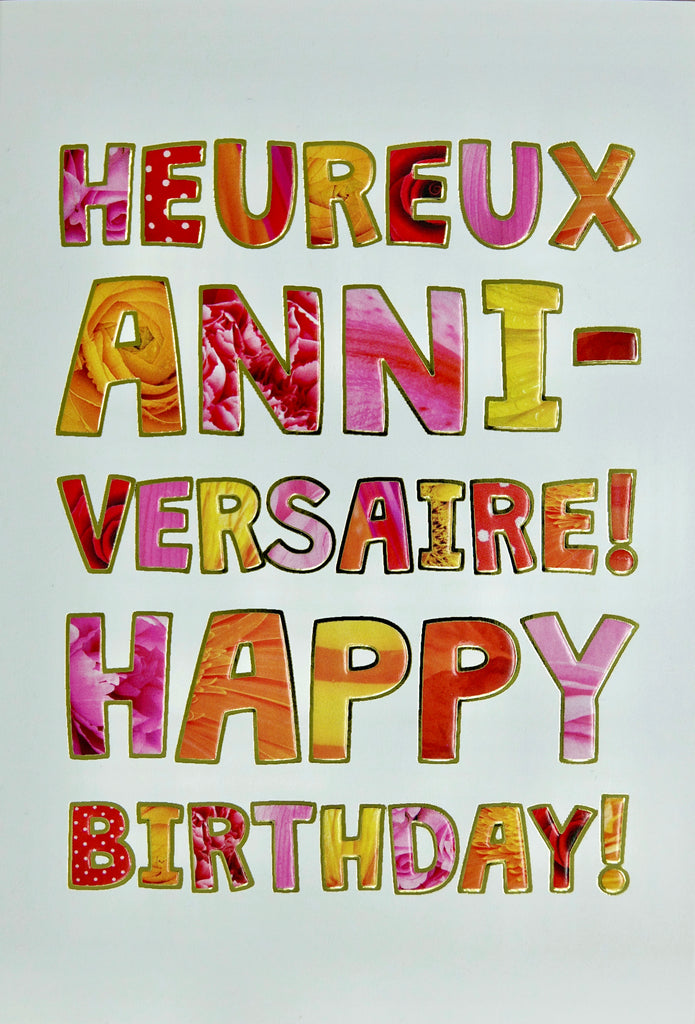 HEUREUX
ANNI-
VERSAIRE!
HAPPY
BIRTHDAY!